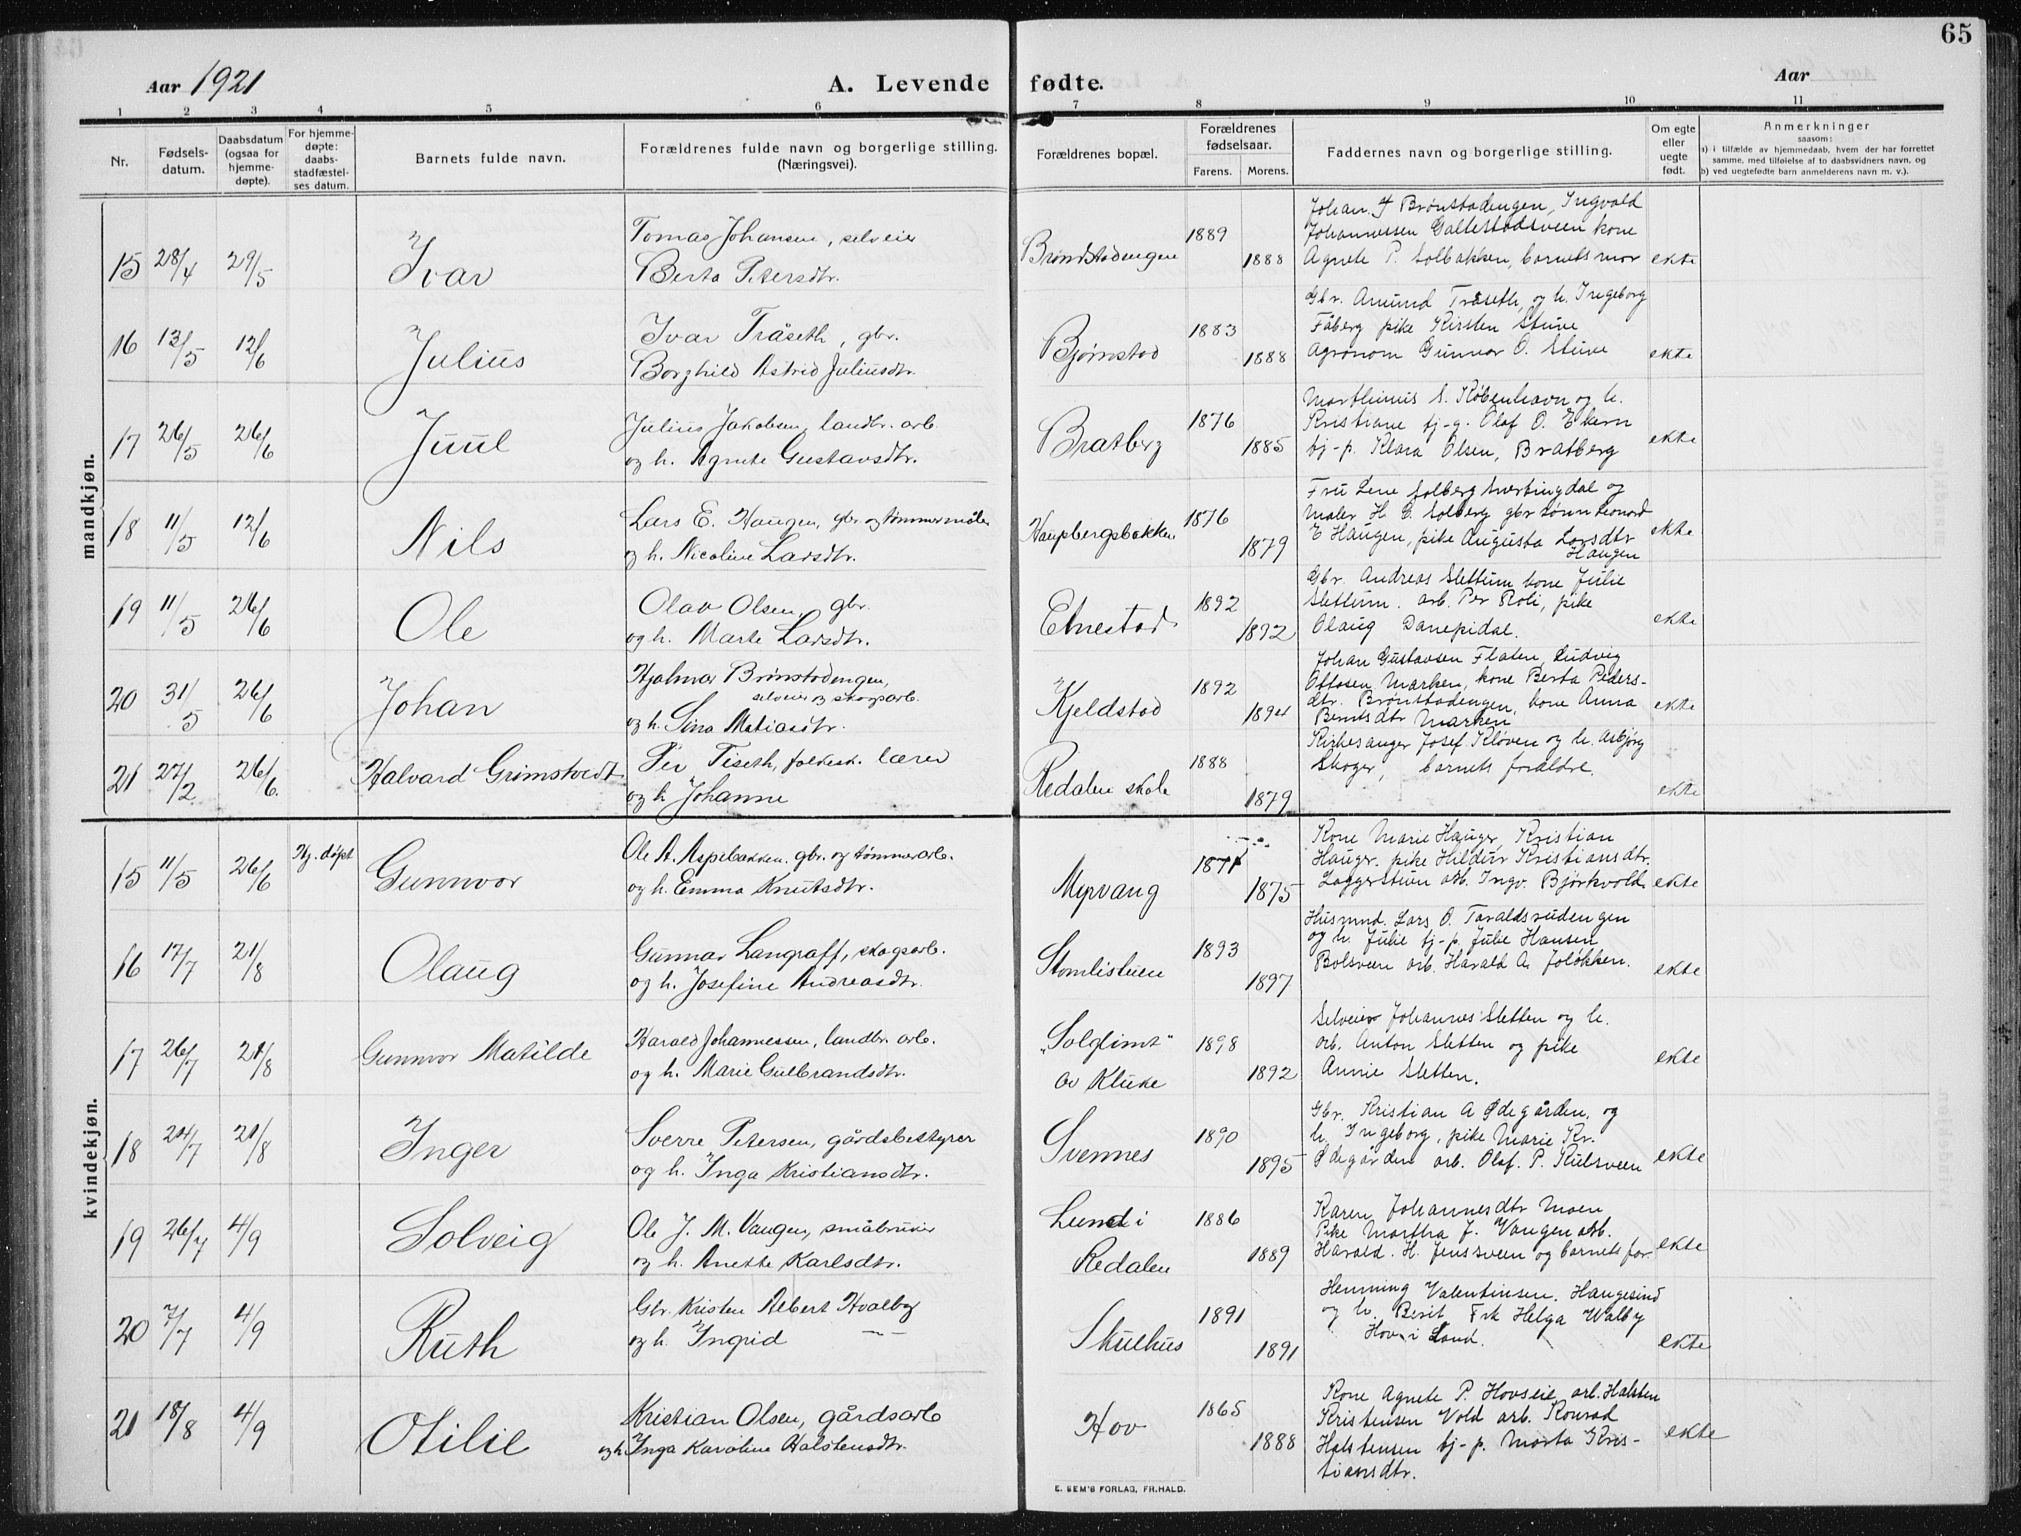 65
Aar 1921
A. Levende fødte.
Aar
1 2 3 4 5 6 7 8 9 10 11
Nr.
Fødsels-
datum.
Daabsdatum
(ogsaa for
hjemme-
døpte).
For hjemme-
døpte:
daabs-
stadfæstel-
ses datum.
Barnets fulde navn.
Forældrenes fulde navn og borgerlige stilling.
(Næringsvei).
Forældrenes bopæl.
Forældrenes
fødselsaar.
Farens. Morens.
Faddernes navn og borgerlige stilling.
Om egte
eller
uegte
født.
Anmerkninger
saasom:
a) i tilfælde av hjemmedaab, hvem der har forrettet
samme, med tilføielse af to daabsvidners navn, og
b) ved uegtefødte barn anmelderens navn m. v.).
mandkjøn.
15 28/4 29/5 Ivar
Tomas Johansen, selveier
Berta Petersdtr.
Brøndstadengen 1889 1888
Johan. Brønstadengen, Ingvald
Johannessen Galtestadsveen kone
Agnete P. Solbakken, barnets mor
ekte
16 13/5 12/6 Julius
Ivar Tråseth, gbr.
Borghild Astrid Juliusdtr.
Bjørnstad 1883 1888
Gbr. Amund Tråseth, og h. Ingeborg
Fåberg pike Kirsten Stuve
Agronom Gunnar O. Stuve
ekte
17 26/5 26/6 Juul
Julius Jakobsen, landbr. arb.
og h. Agnete Gustavsdtr.
Bratberg 1876 1885
Marthinus S. København og h.
Kristiane bj-g. Olaf O. Ekern
bj-p. Klara Olsen, Bratberg
ekte
18 11/5 12/6 Nils
Lars E. Haugen, gbr og tømmermåler
og h. Nicoline Larsdtr.
Haugsbergsbakken 1876 1879
Fru Lene Solberg Snertingdal og
Maler H. G. Solberg gbr sønn Leonard
E Haugen, pike Augusta Larsdtr
Haugen
ekte
19 11/5 26/6 Ole
Olav Olsen, gbr.
og h. Marte Larsdtr.
Elnestad 1892 1892
Gbr. Andreas Slettum kone Julie
Slettum. arb. Per Roli, pike
Olaug
ekte
20 31/5 26/6 Johan
Hjalmar Brønstadengen,
selveier og skogsarb.
og h. Sina Matiasdtr.
Kjeldstad 1892 1894
Johan Gustavsen Flaten, Ludvig
Ottosen Marken, kone Berta Peders-
dtr. Brønstadengen, kone Anna
Berntsdtr Marken
ekte
21 27/2 26/6. Halvard Grimstvedt
Per Tiseth, folkesk. lærer
og h Johanne
Redalen skole 1888 1879
Kirkesanger Josef Kløven og h. Asbjørg
Skoger, barnets foraldre.
ekte
kvindekjøn.
15 11/5 26/6 Hj. døpt Gunnvor
Ole A. Aspebakken. gbr. og tømmerarb.
og h. Emma Knutsdtr.
Myrvang 1871 1875
Kone Marie Hauger, Kristian
Hauger. pike Hildur Kristiansdtr.
Laggerstuen arb. Ingv. Bjørkvold
ekte
16 17/7 21/8 Olaug
Gunnar Langraff, skogsarb.
og h. Josefine Andreasdtr.
Stomlistuen 1893 1897
Husmnd. Lars O. Taraldsrudengen
og h. Julie bj-p. Julie Hansen
Bolsveen arb. Harald A. Joløkken.
ekte
17 26/7 21/8 Gunnvor Matilde
Harald Johannessen, landbr. arb.
og h. Marie Gulbrandsdtr.
„Solglimt"
av Kluke 1898 1892
Selveier Johannes Sletten og h.
arb. Anton Sletten og pike
Annie Sletten.
ekte
18 24/7 21/8 Inger
Sverre Petersen, gårdsbestyrer
og h. Inga Kristiansdtr.
Svennes 1890 1895
Gbr. Kristian A Ødegården, og
h. Ingeborg, pike Marie Kr.
Ødegården arb. Olaf. P. Kulsveen
ekte
19 26/7 4/9 Solveig
Ole J. M. Vangen, småbruker
og h. Anette Karlsdtr.
Lund i
Redalen 1886 1889
Karen Johannesdtr Moen
Pike Martha J. Vangen arb.
Harald. H. Jensveen og barnets far.
ekte
20 7/7 4/9 Ruth
Gbr. Kristen Albert Hvalby
og h. Ingrid —"—
Skulhus 1891 1891
Henning Valentinsen. Haugesund
og h. Berit Frk Helga Walby
Hov i Land.
ekte
21 18/8 4/9 Otilie
Kristian Olsen, gårdsarb
og h. Inga Karoline Halstensdtr.
Hov 1865 1888
Kone Agnete P. Hovseie, arb. Halsten
Kristensen Vold arb. Konrad
Halstensen bj-p. Marta Kris-
tiansdtr.
ekte
E. SEM'S FORLAG, FR.HALD.